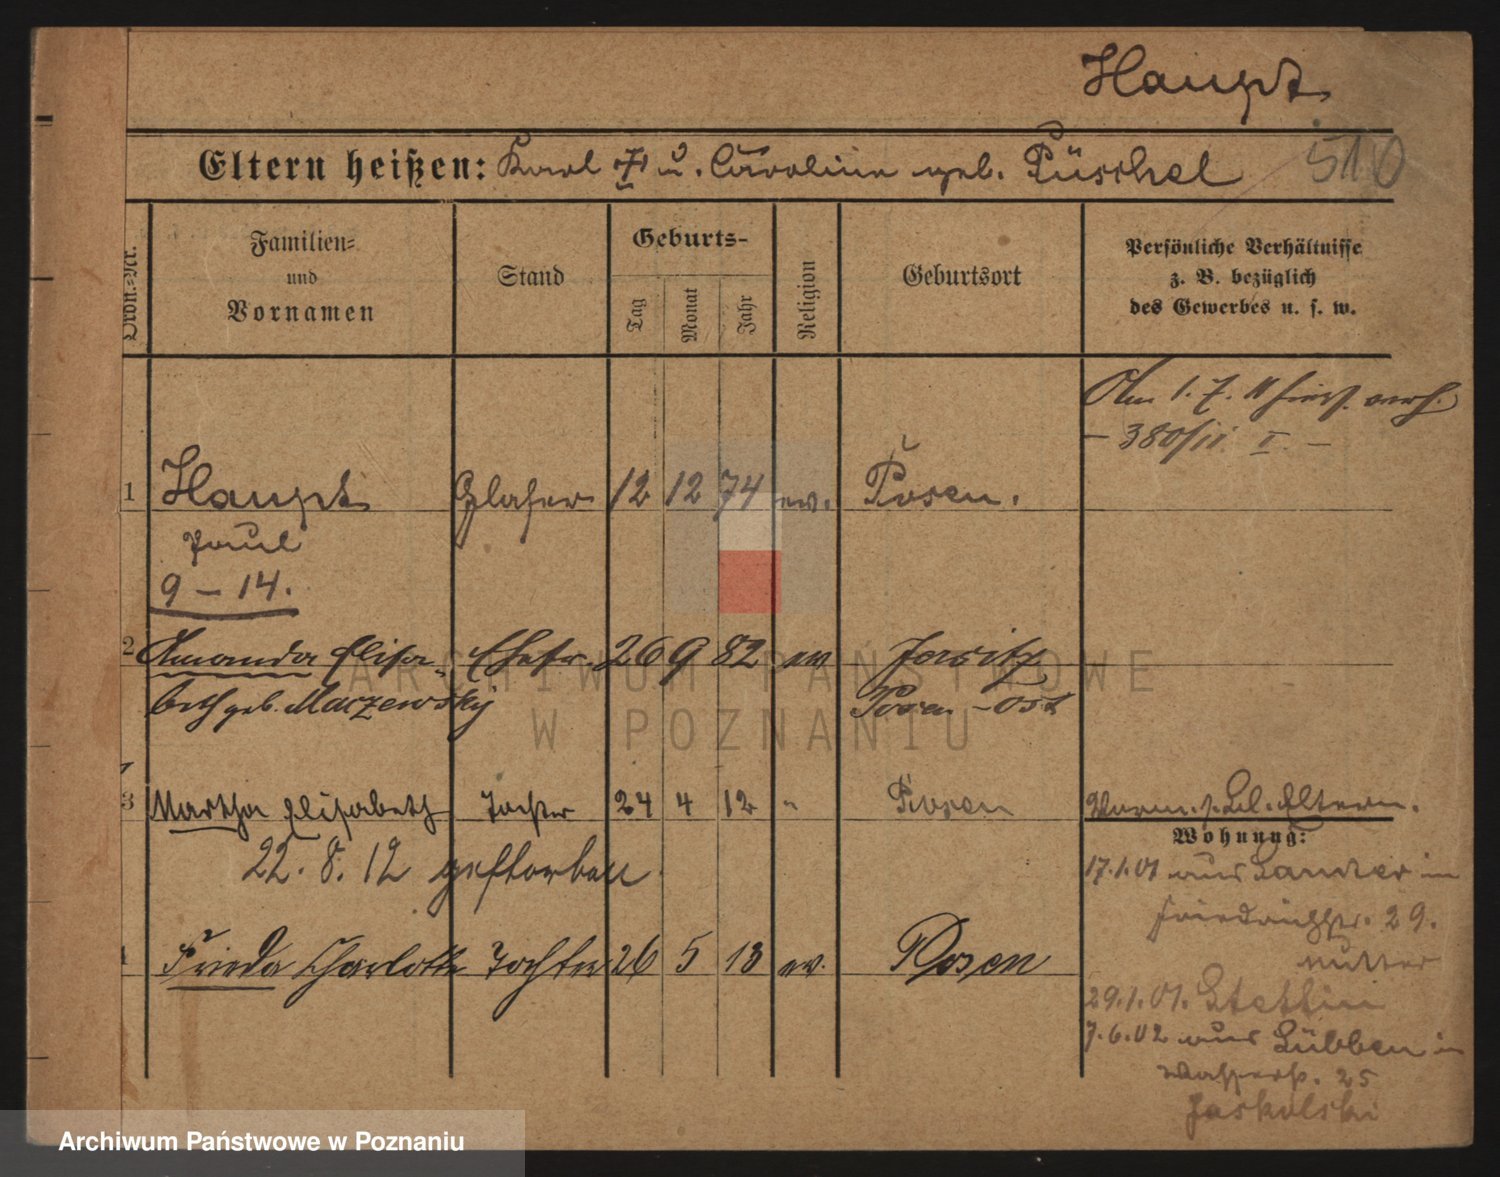 Haupt
510
Eltern heißen: Karl † u. Caroline geb. Püschel
Ordn.-Nr.
Familien-
und
Vornamen
Stand
Geburts-
Tag
Monat
Jahr
Religion
Geburtsort
Persönliche Verhältnisse
z. B. bezüglich
des Gewerbes u. s. w.
Am 1. 7. 11 hier verh.
– 380/11. I. –
1 Haupt Glaser 12 12 74 ev. Posen.
Paul
9 – 14.
2 Amanda Elisa- Ehefr. 26 9 82 ev Jersitz
beth geb. Maczewsky Posen-Ost
3 Martha Elisabeth Tochter 24 4 12 " Posen
22. 8. 12 gestorben
Frieda Charlotte Tochter 26 5 13 ev. Posen
Eltern.
Wohnung:
17.1.01 aus in
Friedrichstr. 29.
Mutter
29.1.01. Stettin
7.6.02 aus Lübben in
Wasserstr. 25
Jaskulski
ARCHIWUM PAŃSTWOWE
W POZNANIU
Archiwum Państwowe w Poznaniu